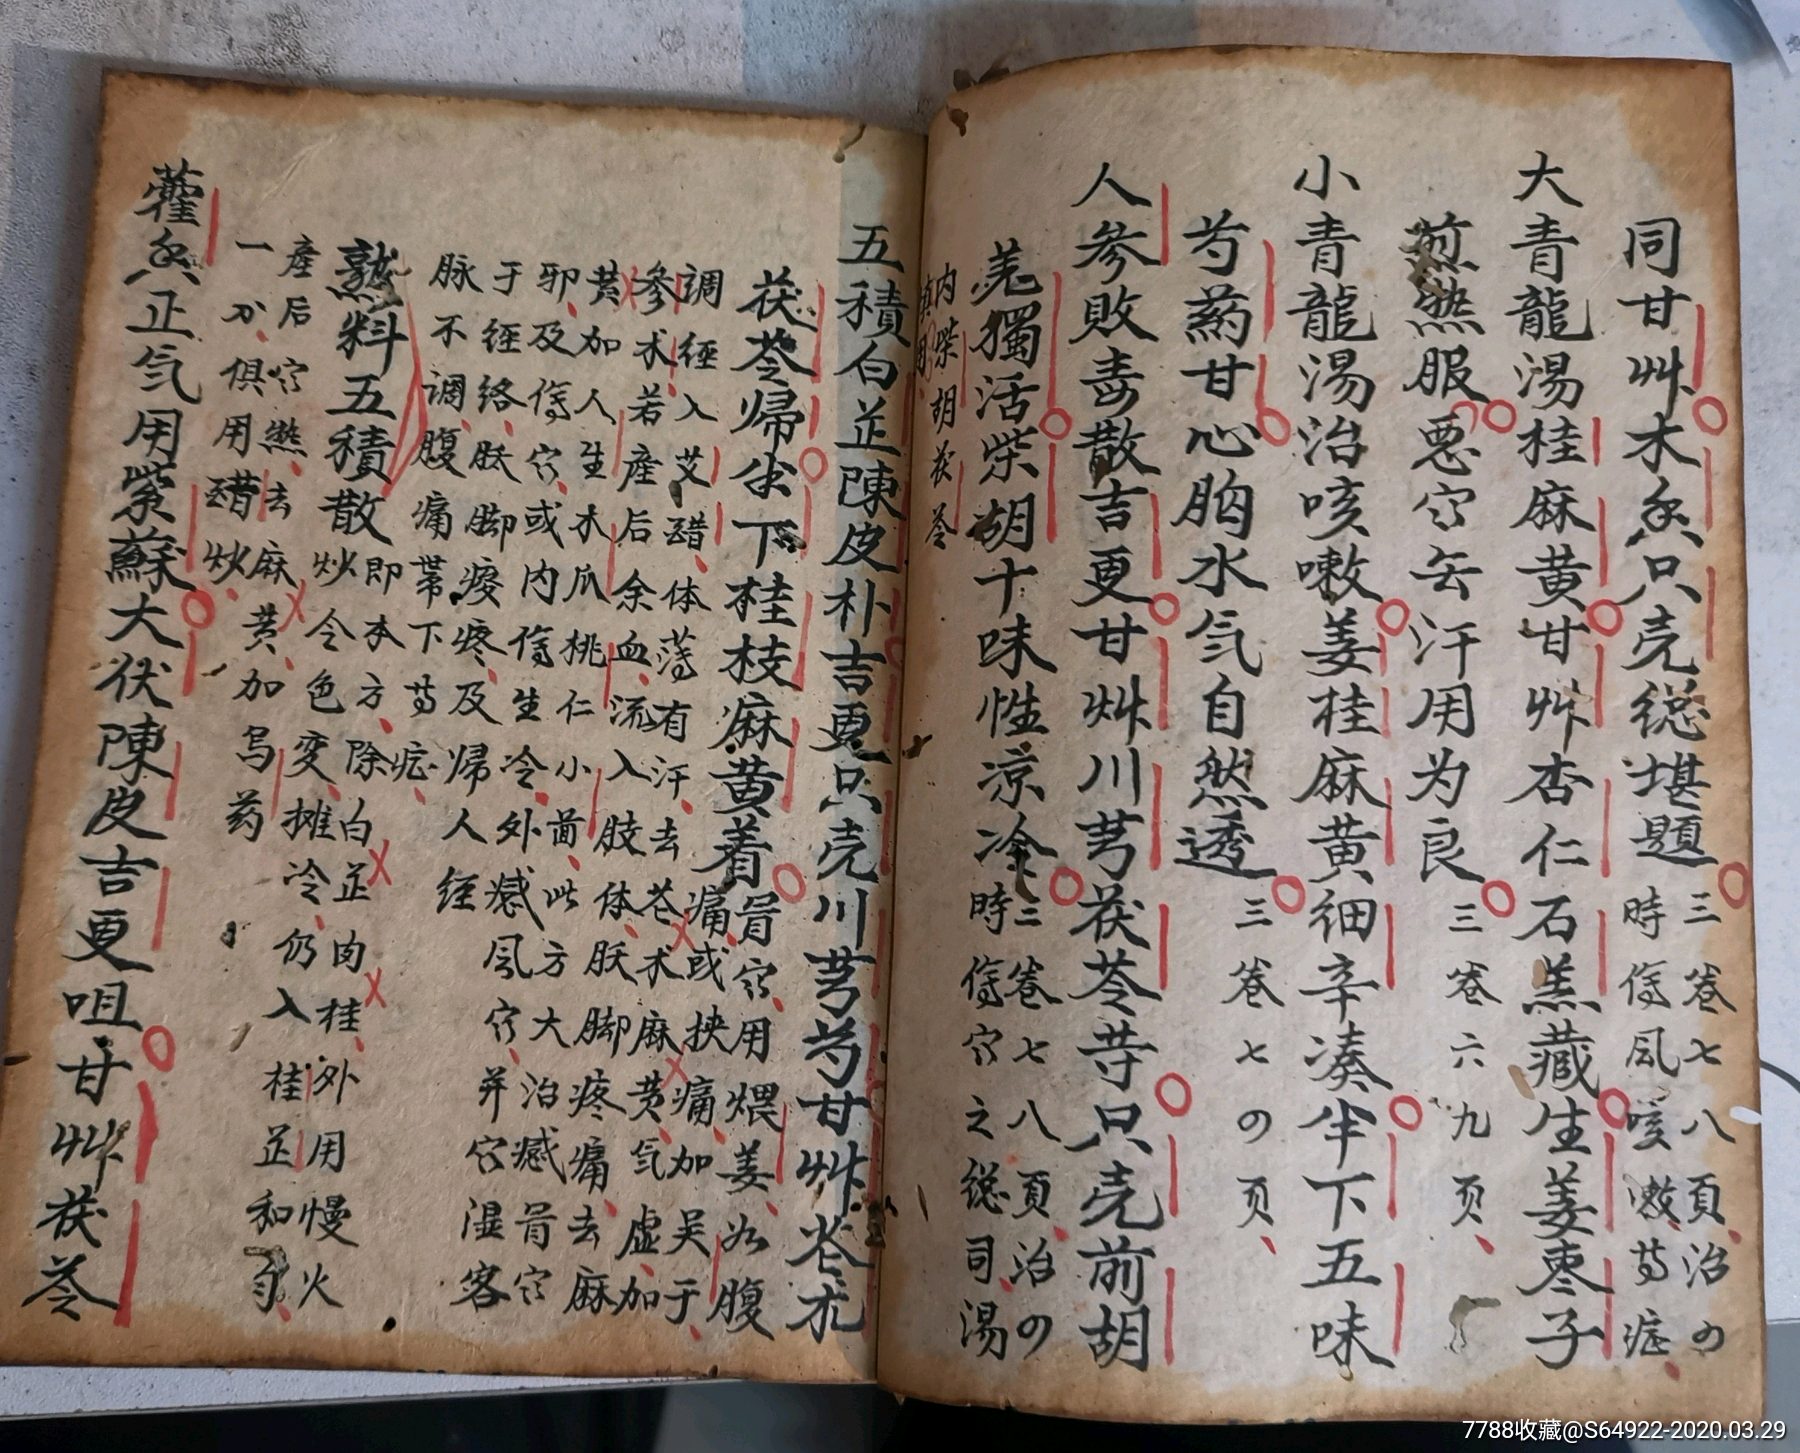 同甘艸木香只壳総堪題
三卷七八頁治の
時傷風咳嗽等症
大青龍湯桂麻黄甘艸杏仁石羔藏生姜枣子
煎热服恶穴缶汗用为良
三卷六九页
小青龍湯治咳嗽姜桂麻黄细辛凑半下五味
芍药甘心胸水气自然透
三卷七の页
人参敗毒散吉更甘艸川芎茯苓等只壳前胡
羗獨活柴胡十味性凉冷
三卷七八頁治の
時傷穴之総司湯
内柴胡茯苓
五積白芷陳皮朴吉更只壳川芎芍甘艸苍朮
茯苓帰半下桂枝麻黄着
骨穴用煨姜如腹
痛或挾痛加吴于
調經入艾醋体薄有汗去苍术麻黄气虚加
参术若産后余血流入肢体朕脚疼痛去麻
黄加人生木瓜桃仁小茴此方大治感骨穴
邪及傷穴或内傷生冷外感風穴并穴湿客
于經络朕脚痠疼及帰人經
脉不调腹痛带下等症
熟料五積散
即本方除白芷肉桂外用慢火
炒令色变摊冷仍入桂芷和匀
産后穴热去麻黄加乌药
一方俱用醋炒
藿香正气用紫蘇大伏陳皮吉更咀甘艸茯苓
7788收藏@S64922-2020.03.29